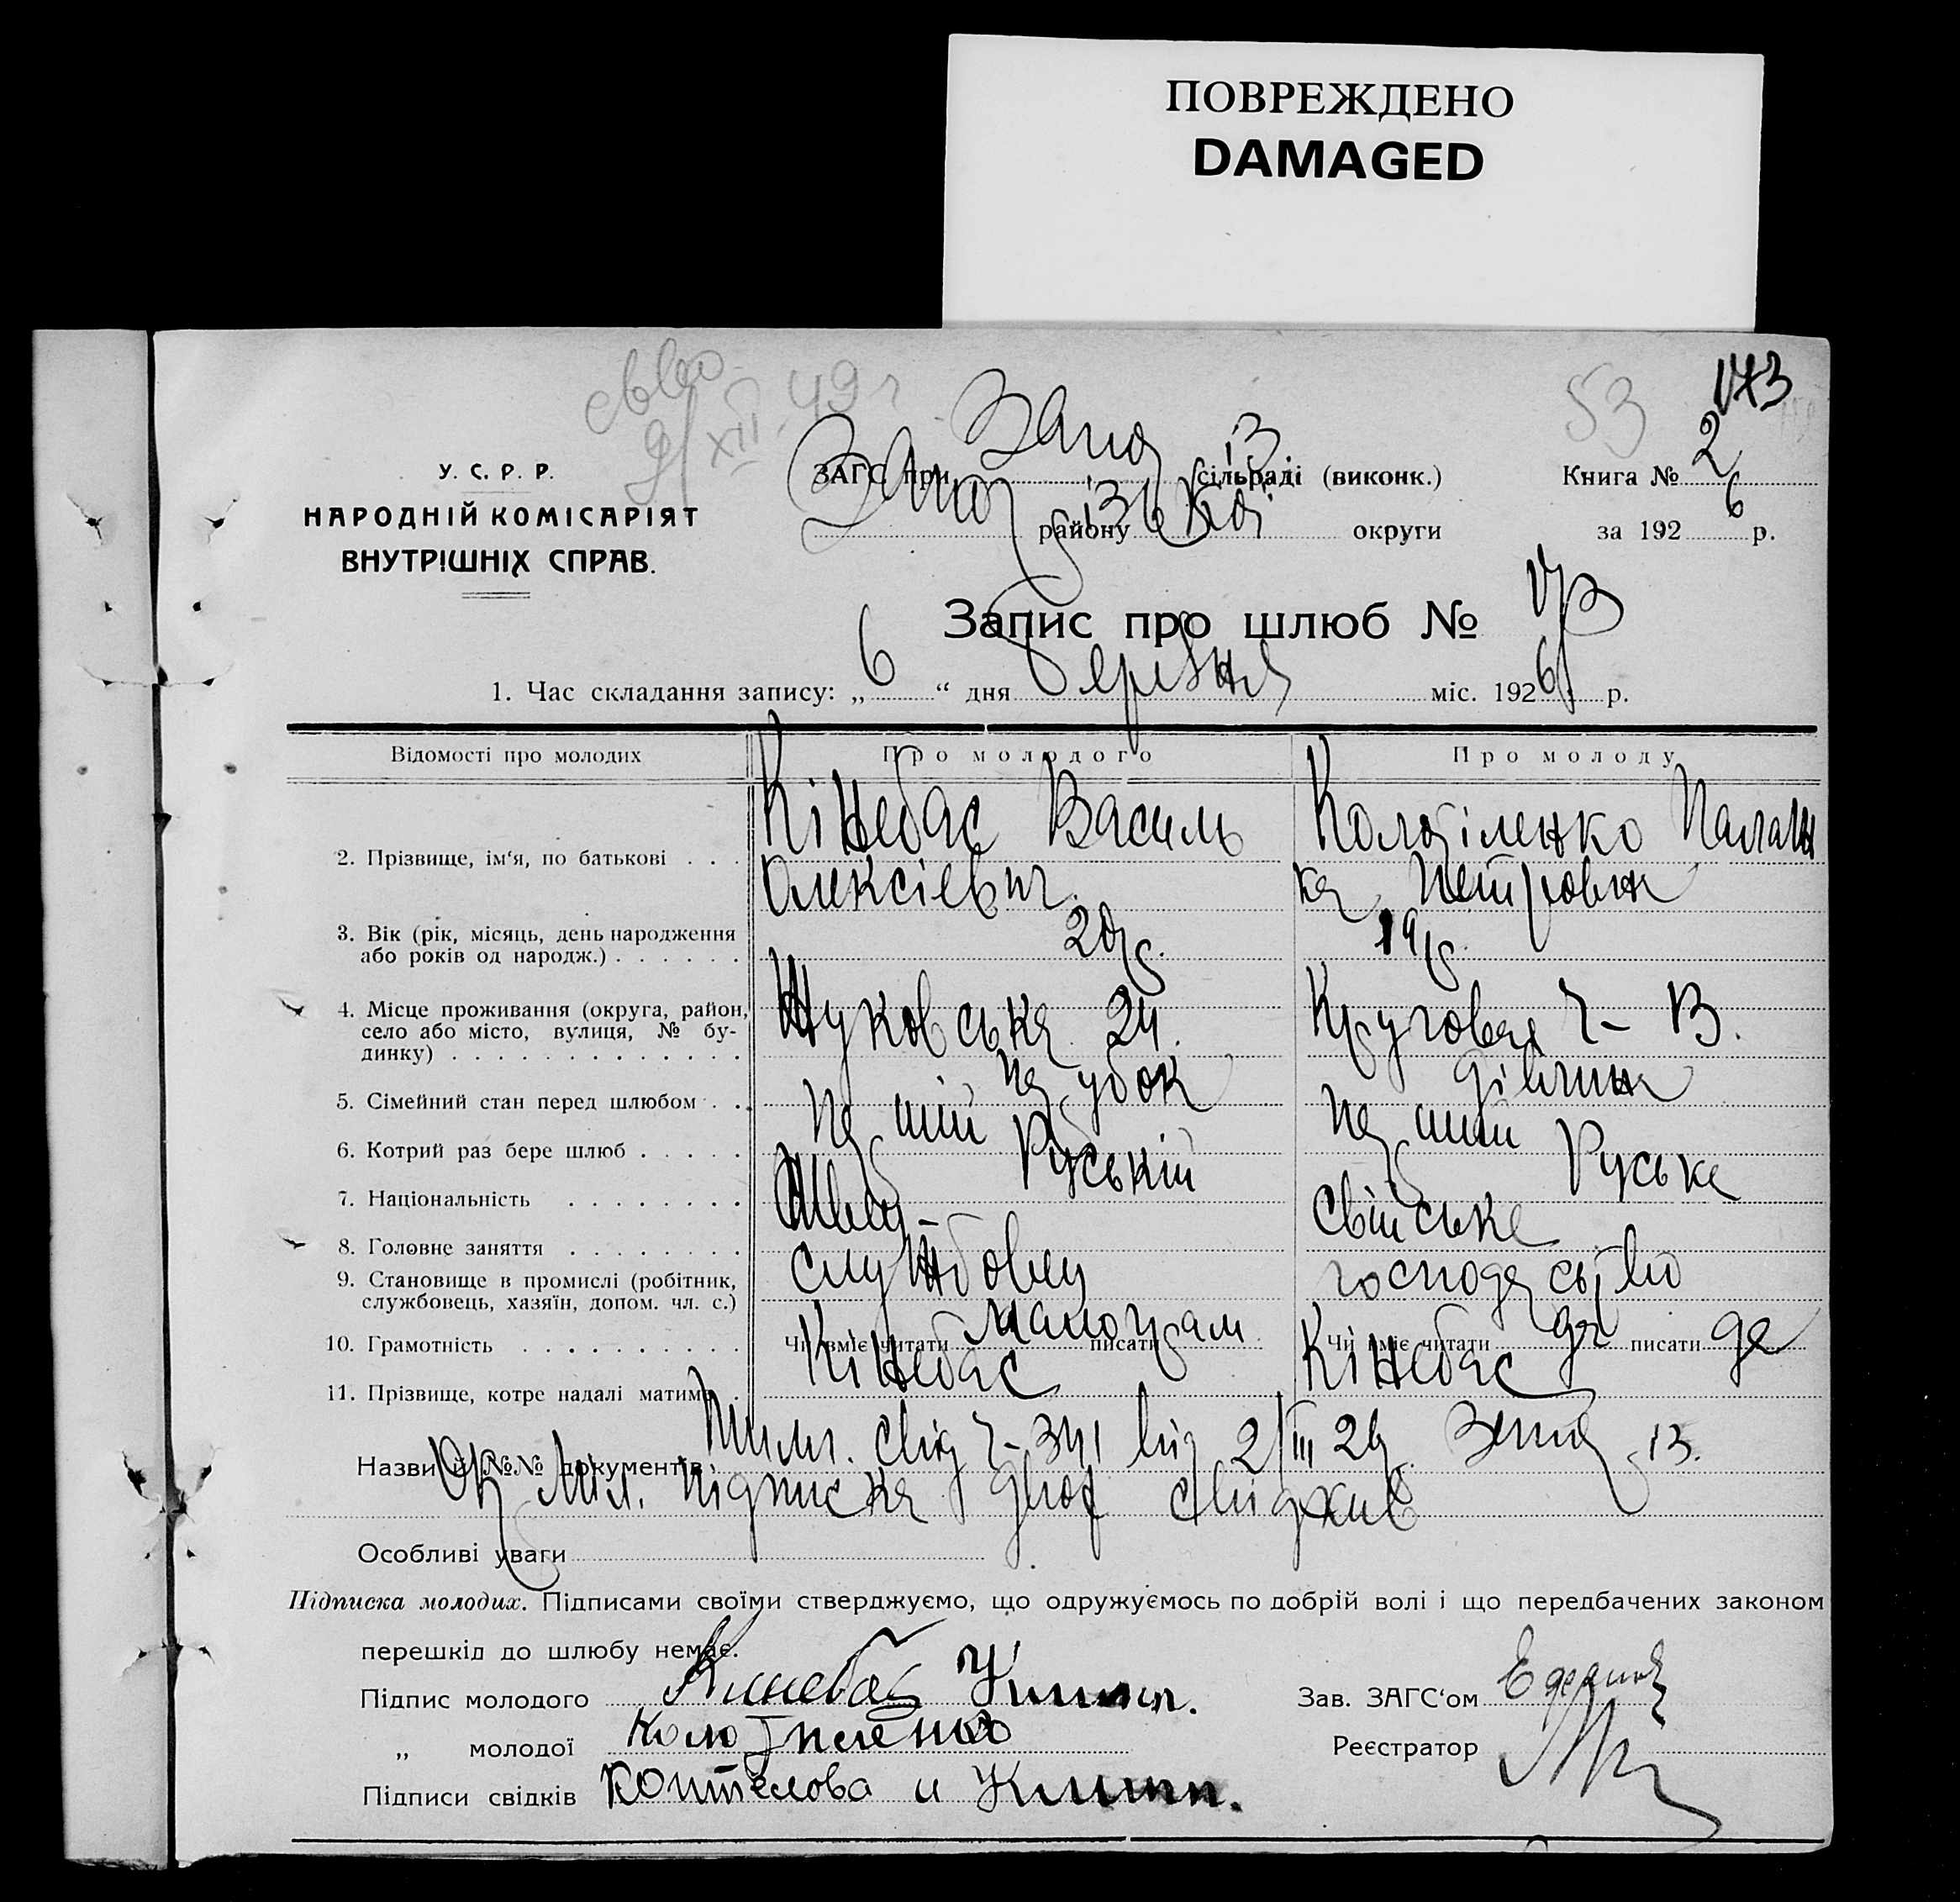 ПОВРЕЖДЕНО
DAMAGED
53
173
У. С. Р. Р.
НАРОДНІЙ КОМІСАРІЯТ
ВНУТРІШНІХ СПРАВ.
ЗАГС при сільраді (виконк.)
району округи
Книга № 2
за 1926 р.
Запис про шлюб №
1. Час складання запису: „6“ дня Березня міс. 1926 р.
Відомості про молодих Про молодого Про молоду
2. Прізвище, ім‘я, по батькові . . . Кінебас Василь Колотіленко Палаж
Олексієвич ка Петровна
3. Вік (рік, місяць, день народження
або років од народж.) . . . . . . 20 р. 19 р.
4. Місце проживання (округа, район,
село або місто, вулиця, № бу-
динку) . . . . . . . . . . . . . Жуковська 24. Круговая
5. Сімейний стан перед шлюбом . . . парубок дівчина
6. Котрий раз бере шлюб . . . . . перший перший
7. Національність . . . . . . . . Руський Руська
8. Головне заняття . . . . . . . . Швец- свійське
9. Становище в промислі (робітник,
службовець, хазяїн, допом. чл. с.) службовец господарство
10. Грамотність . . . . . . . . . . Чи вміє читати малограм. писати Чи вміє читати да писати да
11. Прізвище, котре надалі матиме . Кінебас Кінебас
Назви й №№ документів: від 2/III 26
Міл. підписка двох свідків
Особливі уваги
Підписка молодих. Підписами своїми стверджуємо, що одружуємось по добрій волі і що передбачених законом
перешкід до шлюбу немає.
Підпис молодого Кинебас Зав. ЗАГС‘ом
„ молодої Колотиленко Реєстратор
Підписи свідків и